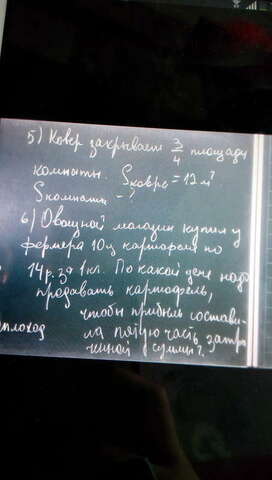 5) Ковёр закрывает 3/4 площади
комнаты. Sковра = 12 м²
Sкомнаты - ?
6) Овощной магазин купил у
фермера 10ц картофеля по
14 р. за 1 кг. По какой цене надо
продавать картофель,
чтобы прибыль состави-
плоход ла пятую часть затра-
ченной суммы?